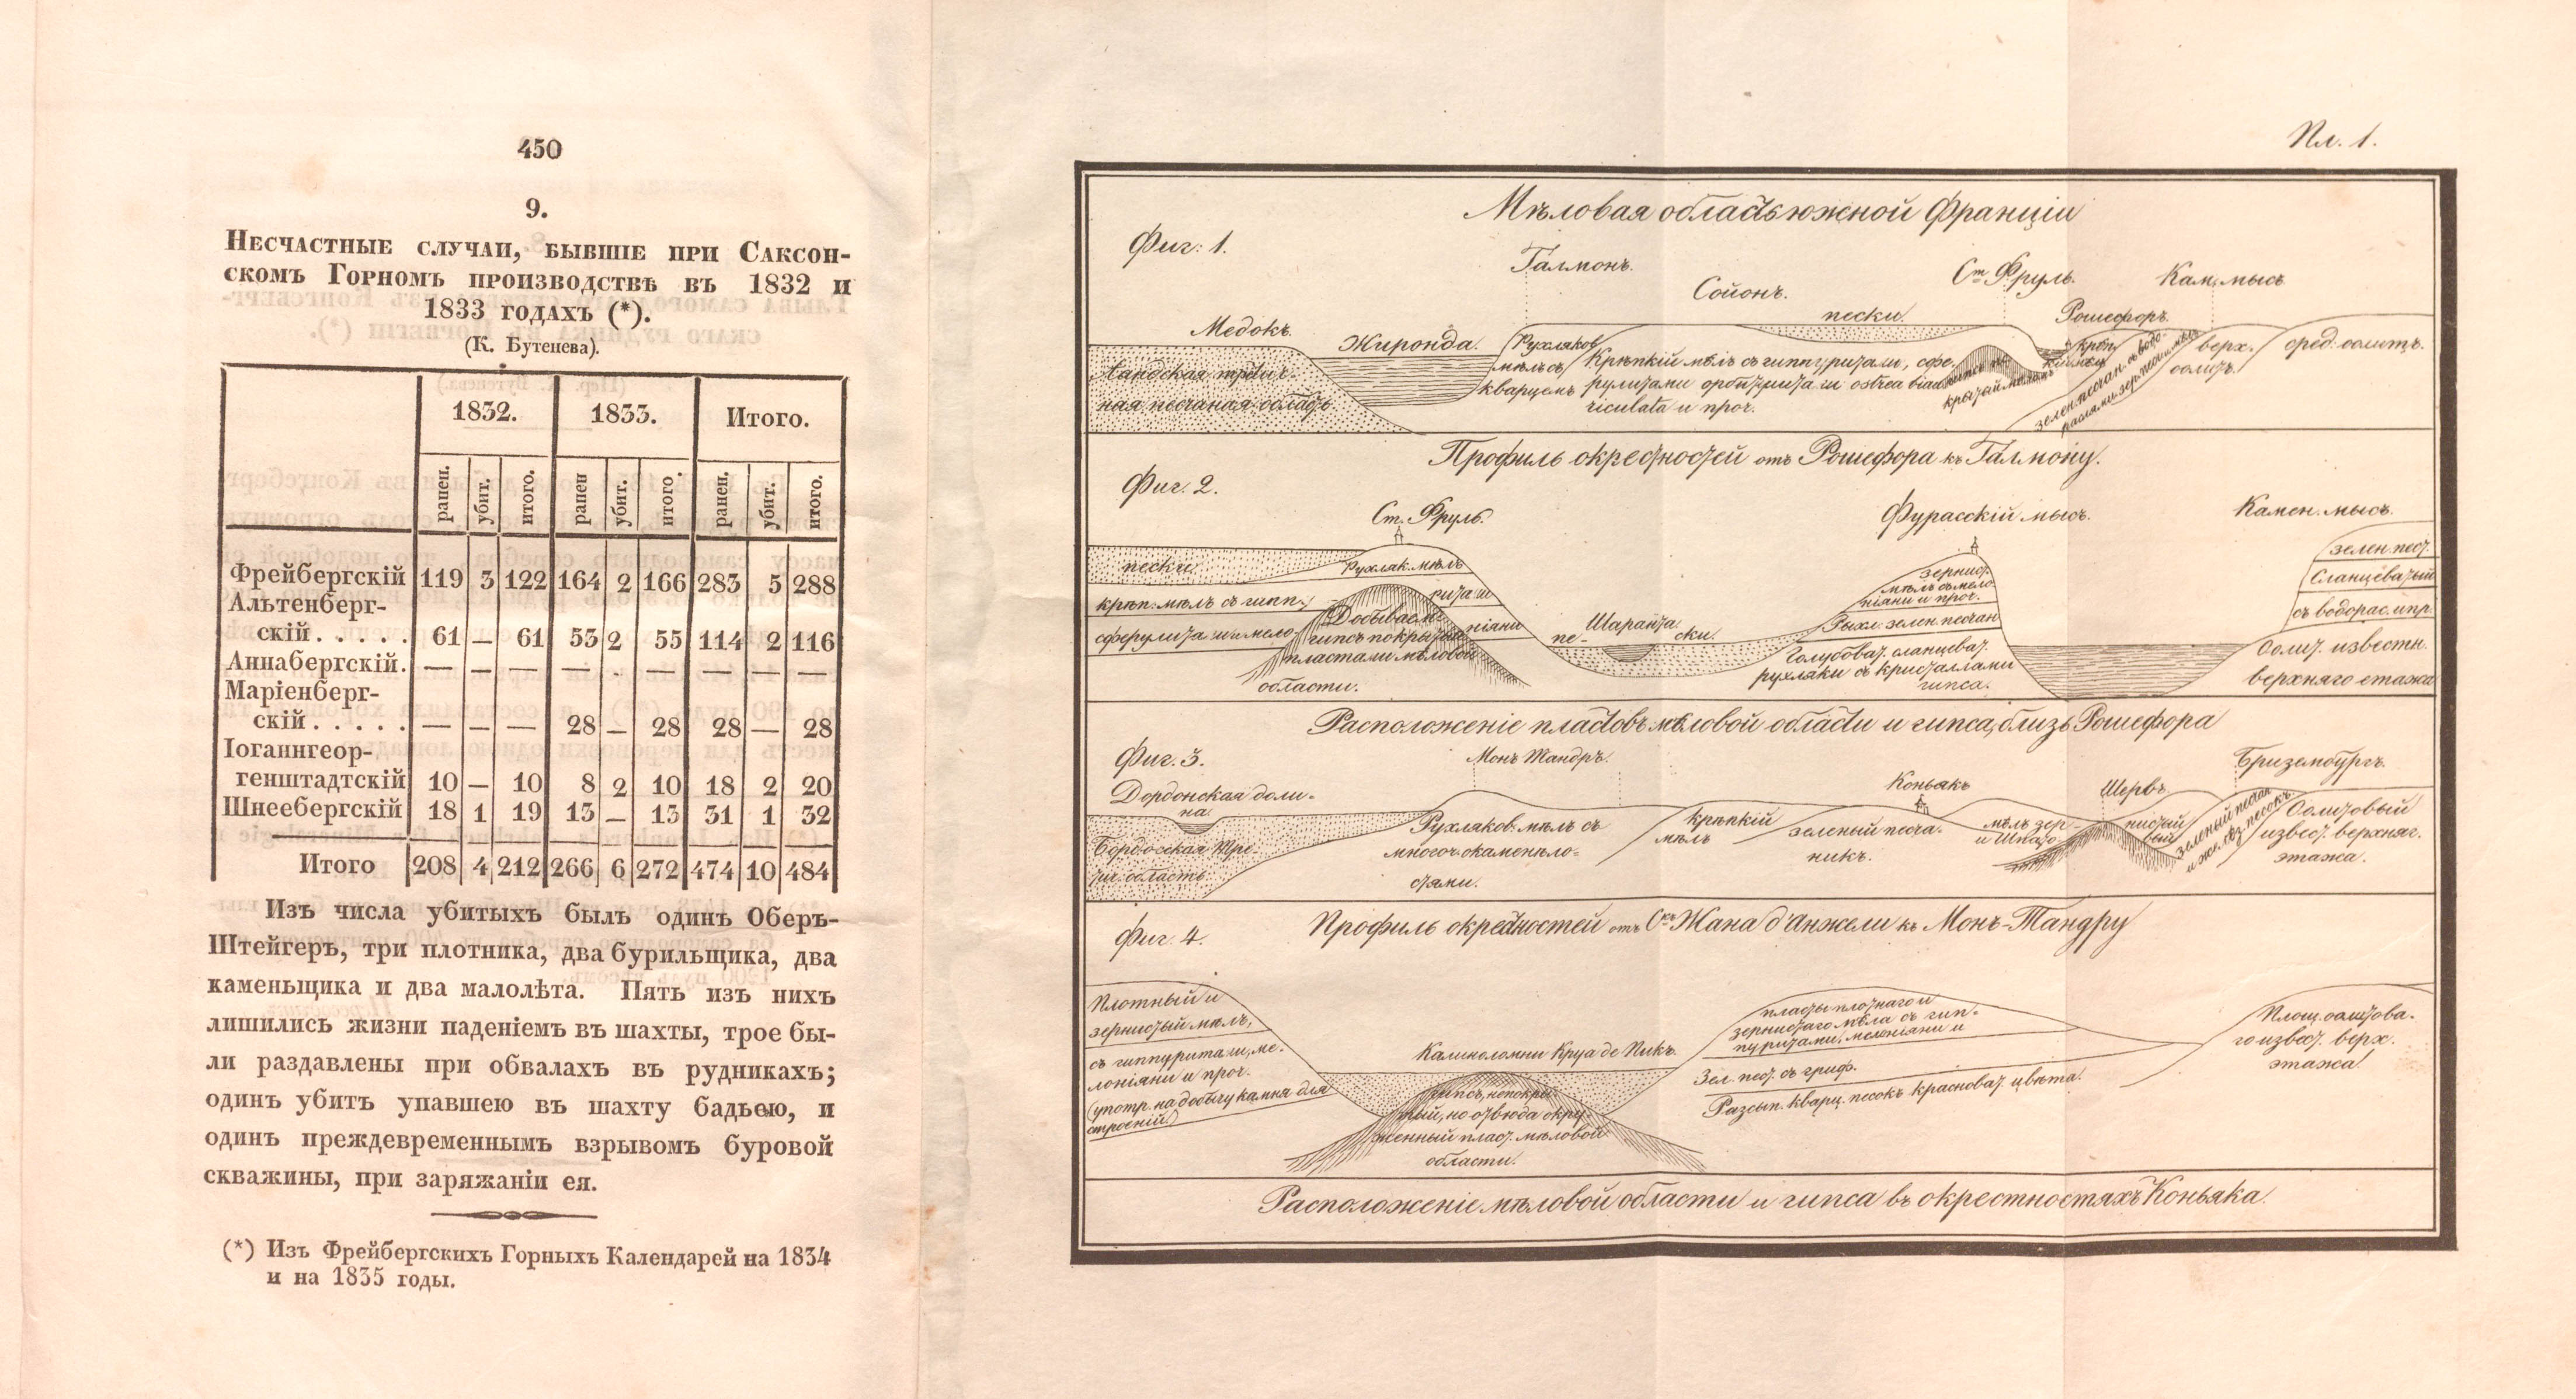 450
9.
Несчастные случаи, бывшіе при Саксон-
скомъ Горномъ производствѣ въ 1832 и
1833 годахъ (*).
(К. Бутенева).
1832. 1833. Итого.
ранен. убит. итого. ранен убит. итого. ранен. убит. итого.
Фрейбергскій 119 3 122 164 2 166 283 5 288
Альтенберг-
скій..... 61 — 61 53 2 55 114 2 116
Аннабергскій. — — — — . — — — —
Маріенберг-
скій..... — — — 28 — 28 28 — 28
Іоганнгеор-
генштадтскій 10 — 10 8 2 10 18 2 20
Шнеебергскій 18 1 19 13 — 13 31 1 32
Итого 208 4 212 266 6 272 474 10 484
Изъ числа убитыхъ былъ одинъ Оберъ-
Штейгеръ, три плотника, два бурильщика, два
каменьщика и два малолѣта. Пять изъ нихъ
лишились жизни паденіемъ въ шахты, трое бы-
ли раздавлены при обвалахъ въ рудникахъ;
одинъ убитъ упавшею въ шахту бадьею, и
одинъ преждевременнымъ взрывомъ буровой
скважины, при заряжаніи ея.
(*) Изъ Фрейбергскихъ Горныхъ Календарей на 1834
и на 1835 годы.
Пл. 1.
Мѣловая область южной Франціи
Фиг: 1.
Талмонъ.
Сойонъ.
Ст. Фруль.
Кам. мысъ
пески.
Рошефоръ.
Медокъ.
Жиронда.
Ландская третич-
ная песчаная область
Рухляков.
мѣлъ съ
кварцемъ
Крѣпкій мѣлъ съ гиппуритами, сфе-
рулитами орбитулитами ostrea biau-
riculata и проч.
верх.
оолит.
сред. оолитъ.
Профиль окрестностей отъ Рошефора къ Талмону.
Фиг. 2.
Ст. Фруль.
Фурасскій мысъ.
Камен. мысъ.
пески
Рухляк. мѣлъ
крѣп. мѣлъ съ гипп-
ритами
сферулитами и мело-
ніями
Добываем.
гипсъ покрытый
пластами мѣловой
области.
Шаранта
пе- ски.
зернист.
мѣлъ съ мело-
ніями и проч.
Рыхл. зелен. песчан
Голубоват. сланцеват.
рухляки съ кристаллами
гипса.
зелен. пест.
Сланцеватый
съ водорас. ипр.
Оолит. известн.
верхняго етажа
Расположеніе пластовъ мѣловой области и гипса, близъ Рошефора
Фиг. 3.
Монъ Тандръ.
Коньякъ
Шервъ
Бризембургъ.
Дордонская доли-
на.
Бордосская тре-
тич. область
Рухляков. мѣлъ съ
многоч. окаменѣло-
стями.
Крѣпкій
мѣлъ
зеленый песча-
никъ.
мѣлъ зер-
нистый
зеленый песчан
Оолитовый
извест. верхняг.
этажа.
Профиль окрестностей отъ Снъ Жана д'Анжели къ Монъ-Тандру
Фиг. 4.
Плотный и
зернистый мѣлъ,
съ гиппуритами, ме-
лоніями и проч.
(употр. на добычу камня для
строеній.)
Каменоломни Круа де Пикъ.
гипсъ, непокры-
тый, но отвсюда окру-
женный пласт. мѣловой
области.
пласты плотнаго и
зернистаго мѣла съ гип-
пуритами, мелоніями и
Зел. пест. съ гриф.
Разсып. кварц. песокъ красноват. цвѣта.
Площ. оолитова-
го извест. верх.
этажа.
Расположеніе мѣловой области и гипса въ окрестностяхъ Коньяка.